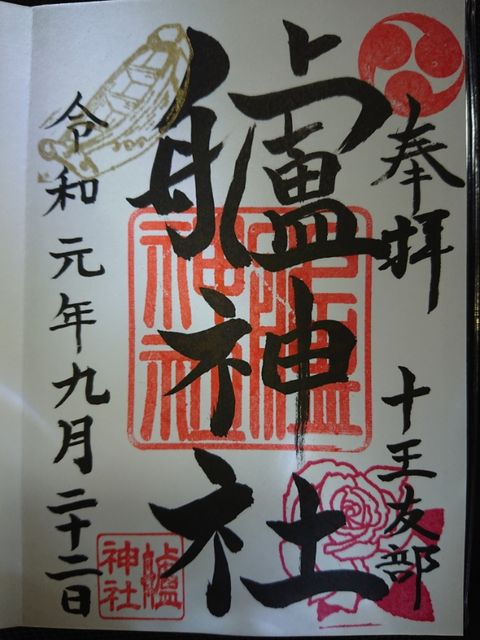 奉拝
十王友部
艫神社
令和元年九月二十二日
艫神社